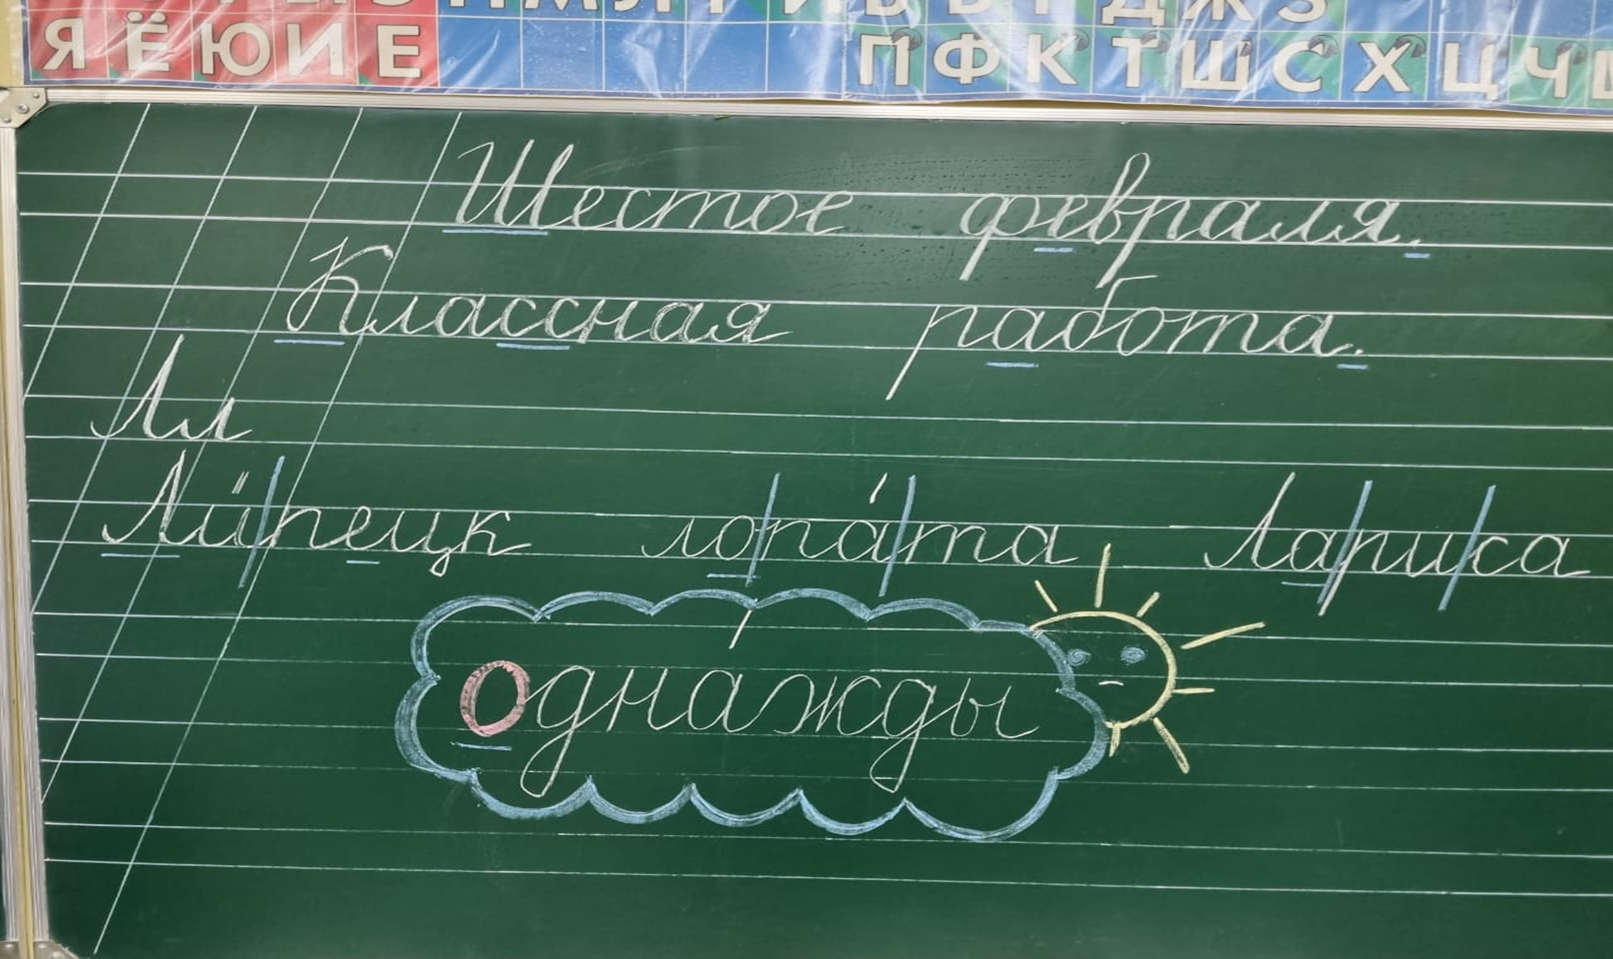 Я Ё Ю И Е П Ф К Т Ш С Х Ц Ч
Шестое февраля.
Классная работа.
Лл
Ли́|пецк ло|па́|та Ла|ри|са
одна́жды